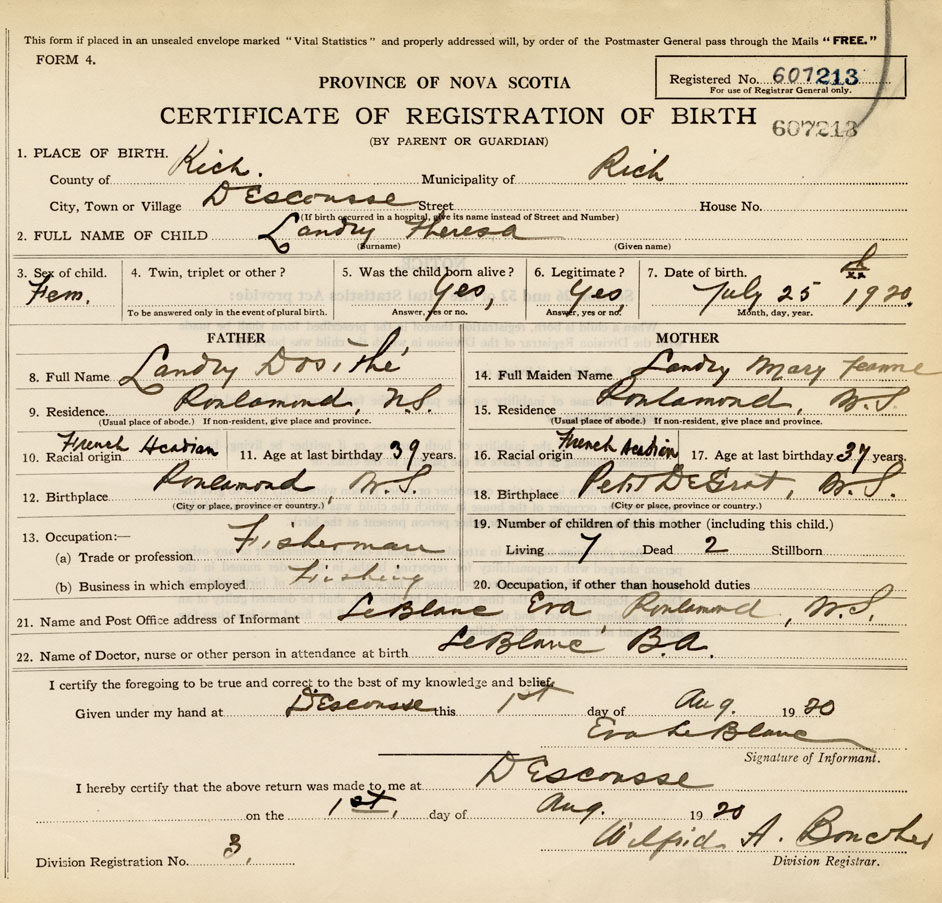 This form if placed in an unsealed envelope marked "Vital Statistics" and properly addressed will, by order of the Postmaster General pass through the Mails "FREE."
FORM 4.
Registered No. 607213
For use of Registrar General only.
PROVINCE OF NOVA SCOTIA
CERTIFICATE OF REGISTRATION OF BIRTH
607213
(BY PARENT OR GUARDIAN)
1. PLACE OF BIRTH.
County of Rich. Municipality of Rich
City, Town or Village D'Escousse Street House No.
(If birth occurred in a hospital, give its name instead of Street and Number)
2. FULL NAME OF CHILD Landry Theresa
(Surname) (Given name)
3. Sex of child. Fem.
4. Twin, triplet or other?
To be answered only in the event of plural birth.
5. Was the child born alive? Yes,
Answer, yes or no.
6. Legitimate? Yes,
Answer, yes or no.
7. Date of birth.
July 25 1920.
Month, day, year.
FATHER
8. Full Name Landry Dosithé
9. Residence Poulamond, N.S.
(Usual place of abode.) If non-resident, give place and province.
10. Racial origin French Acadian 11. Age at last birthday 39 years.
12. Birthplace Poulamond, N.S.
(City or place, province or country.)
13. Occupation:—
(a) Trade or profession Fisherman
(b) Business in which employed Fishing
MOTHER
14. Full Maiden Name Landry Mary Jeanne
15. Residence Poulamond, N.S.
(Usual place of abode.) If non-resident, give place and province.
16. Racial origin French Acadian 17. Age at last birthday 37 years.
18. Birthplace Petit DeGrat, N.S.
(City or place, province or country.)
19. Number of children of this mother (including this child.)
Living 7 Dead 2 Stillborn
20. Occupation, if other than household duties
21. Name and Post Office address of Informant LeBlanc Eva Poulamond, N.S.
22. Name of Doctor, nurse or other person in attendance at birth LeBlanc B.A.
I certify the foregoing to be true and correct to the best of my knowledge and belief.
Given under my hand at D'Escousse this 1st day of Aug. 1920
Eva LeBlanc
Signature of Informant.
I hereby certify that the above return was made to me at D'Escousse
on the 1st, day of Aug. 1920
Wilfrid A. Boucher
Division Registration No. 3,
Division Registrar.